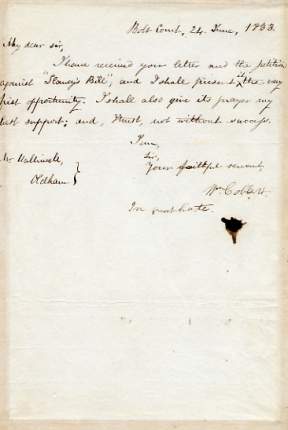 Bolt Court, 24. June, 1833.
My dear sir,
I have received your letter and the petition
against "Stanley's Bill", and I shall present it the very
first opportunity. I shall also give its prayer my
best support; and, I trust, not without success.
I am,
Sir,
Your faithful servant,
Mr Halliwell,
Oldham
Wm Cobbett.
In great haste.